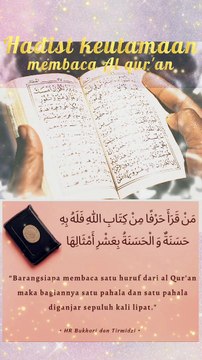 Hadist keutamaan
membaca Al qur'an
مَنْ قَرَأَ حَرْفًا مِنْ كِتَابِ اللَّهِ فَلَهُ بِهِ
حَسَنَةٌ وَالْحَسَنَةُ بِعَشْرِ أَمْثَالِهَا
"Barangsiapa membaca satu huruf dari al Qur'an
maka bagiannya satu pahala dan satu pahala
diganjar sepuluh kali lipat."
- HR Bukhori dan Tirmidzi -